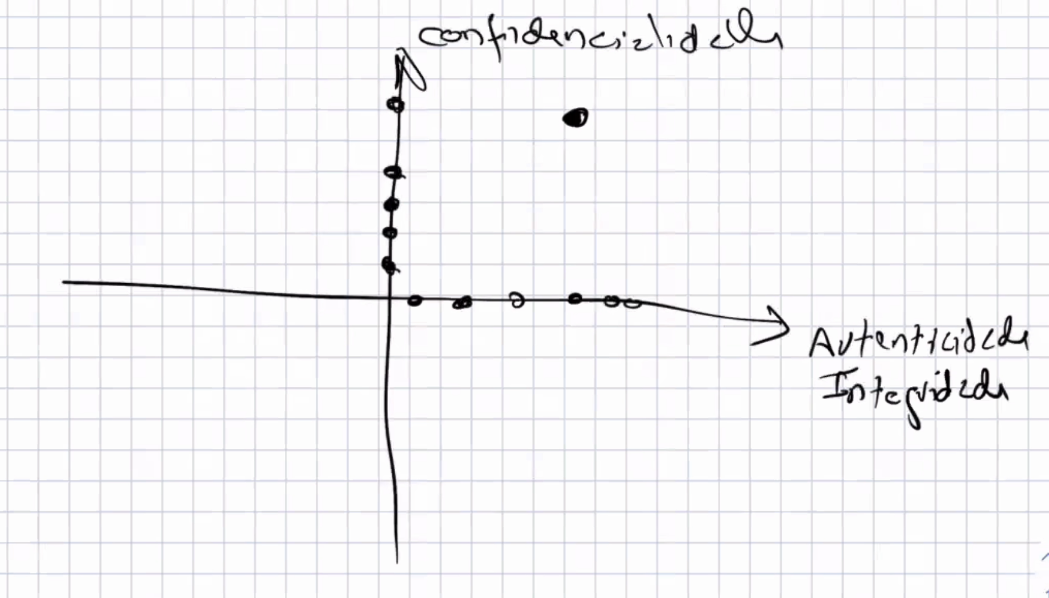 confidencialidade
Autenticidade
Integridade